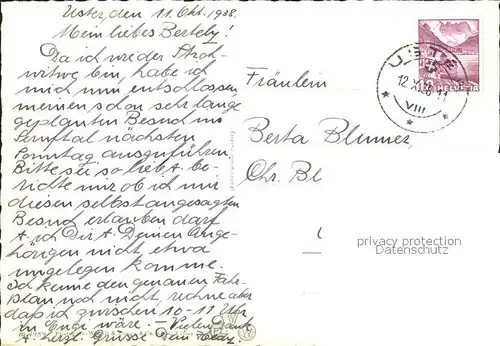 Uster, den 11. Okt. 1938.
Mein liebes Bertely!
Da ich wieder Stroh-
witwe bin, habe ich
mich nun entschlossen
meinen schon sehr lange
geplanten Besuch im
Sernftal nächsten
Sonntag auszuführen.
Bitte sei so lieb & be-
richte mir ob ich mir
diesen selbst angesagten
Besuch erlauben darf
& ich Dir & Deinen Ange-
hörigen nicht etwa
ungelegen komme.
Ich kenne den genauen Fahr-
plan noch nicht, rechne aber
dass ich zwischen 10-11 Uhr
in Engi wäre. – Vielen Dank
& herzl. Grüsse Dein
Fräulein
Berta Blumer,
Chr. Bl
USTER
12.X.38-11
VIII
HELVETIA
privacy protection
Datenschutz